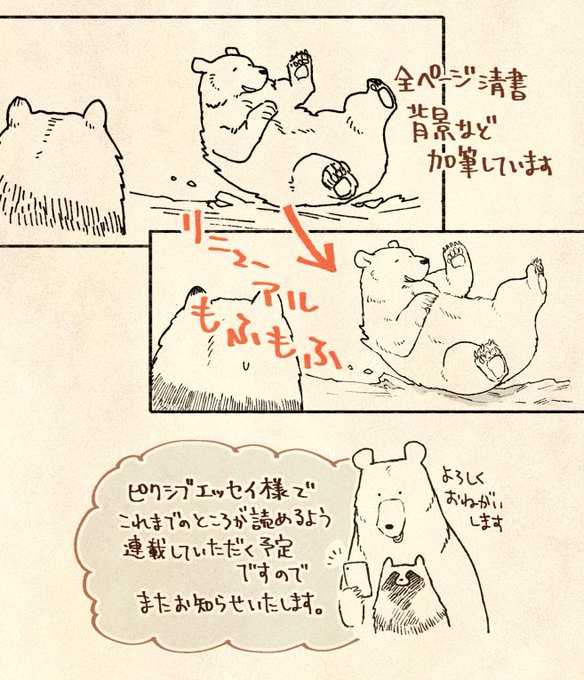 全ページ清書
背景など
加筆しています
リニュー
アル
もふもふ
ピクシブエッセイ様で
これまでのところが読めるよう
連載していただく予定
ですので
またお知らせいたします。
よろしく
おねがい
します